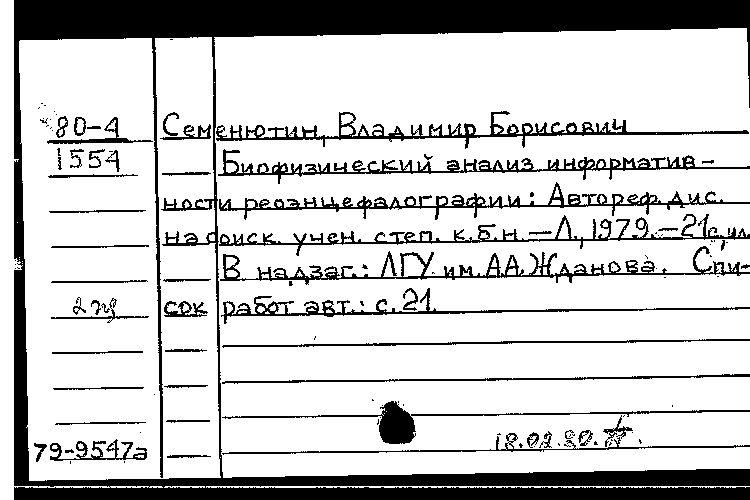 80-4 Семенютин, Владимир Борисович
1554 Биофизический анализ информатив-
ности реоэнцефалографии: Автореф. дис.
на соиск. учен. степ. к.б.н. — Л., 1979. — 21с, ил.
В надзаг.: ЛГУ им. А.А. Жданова. Спи-
2 эк сок работ авт.: с. 21.
79-9547а 18.02.80.